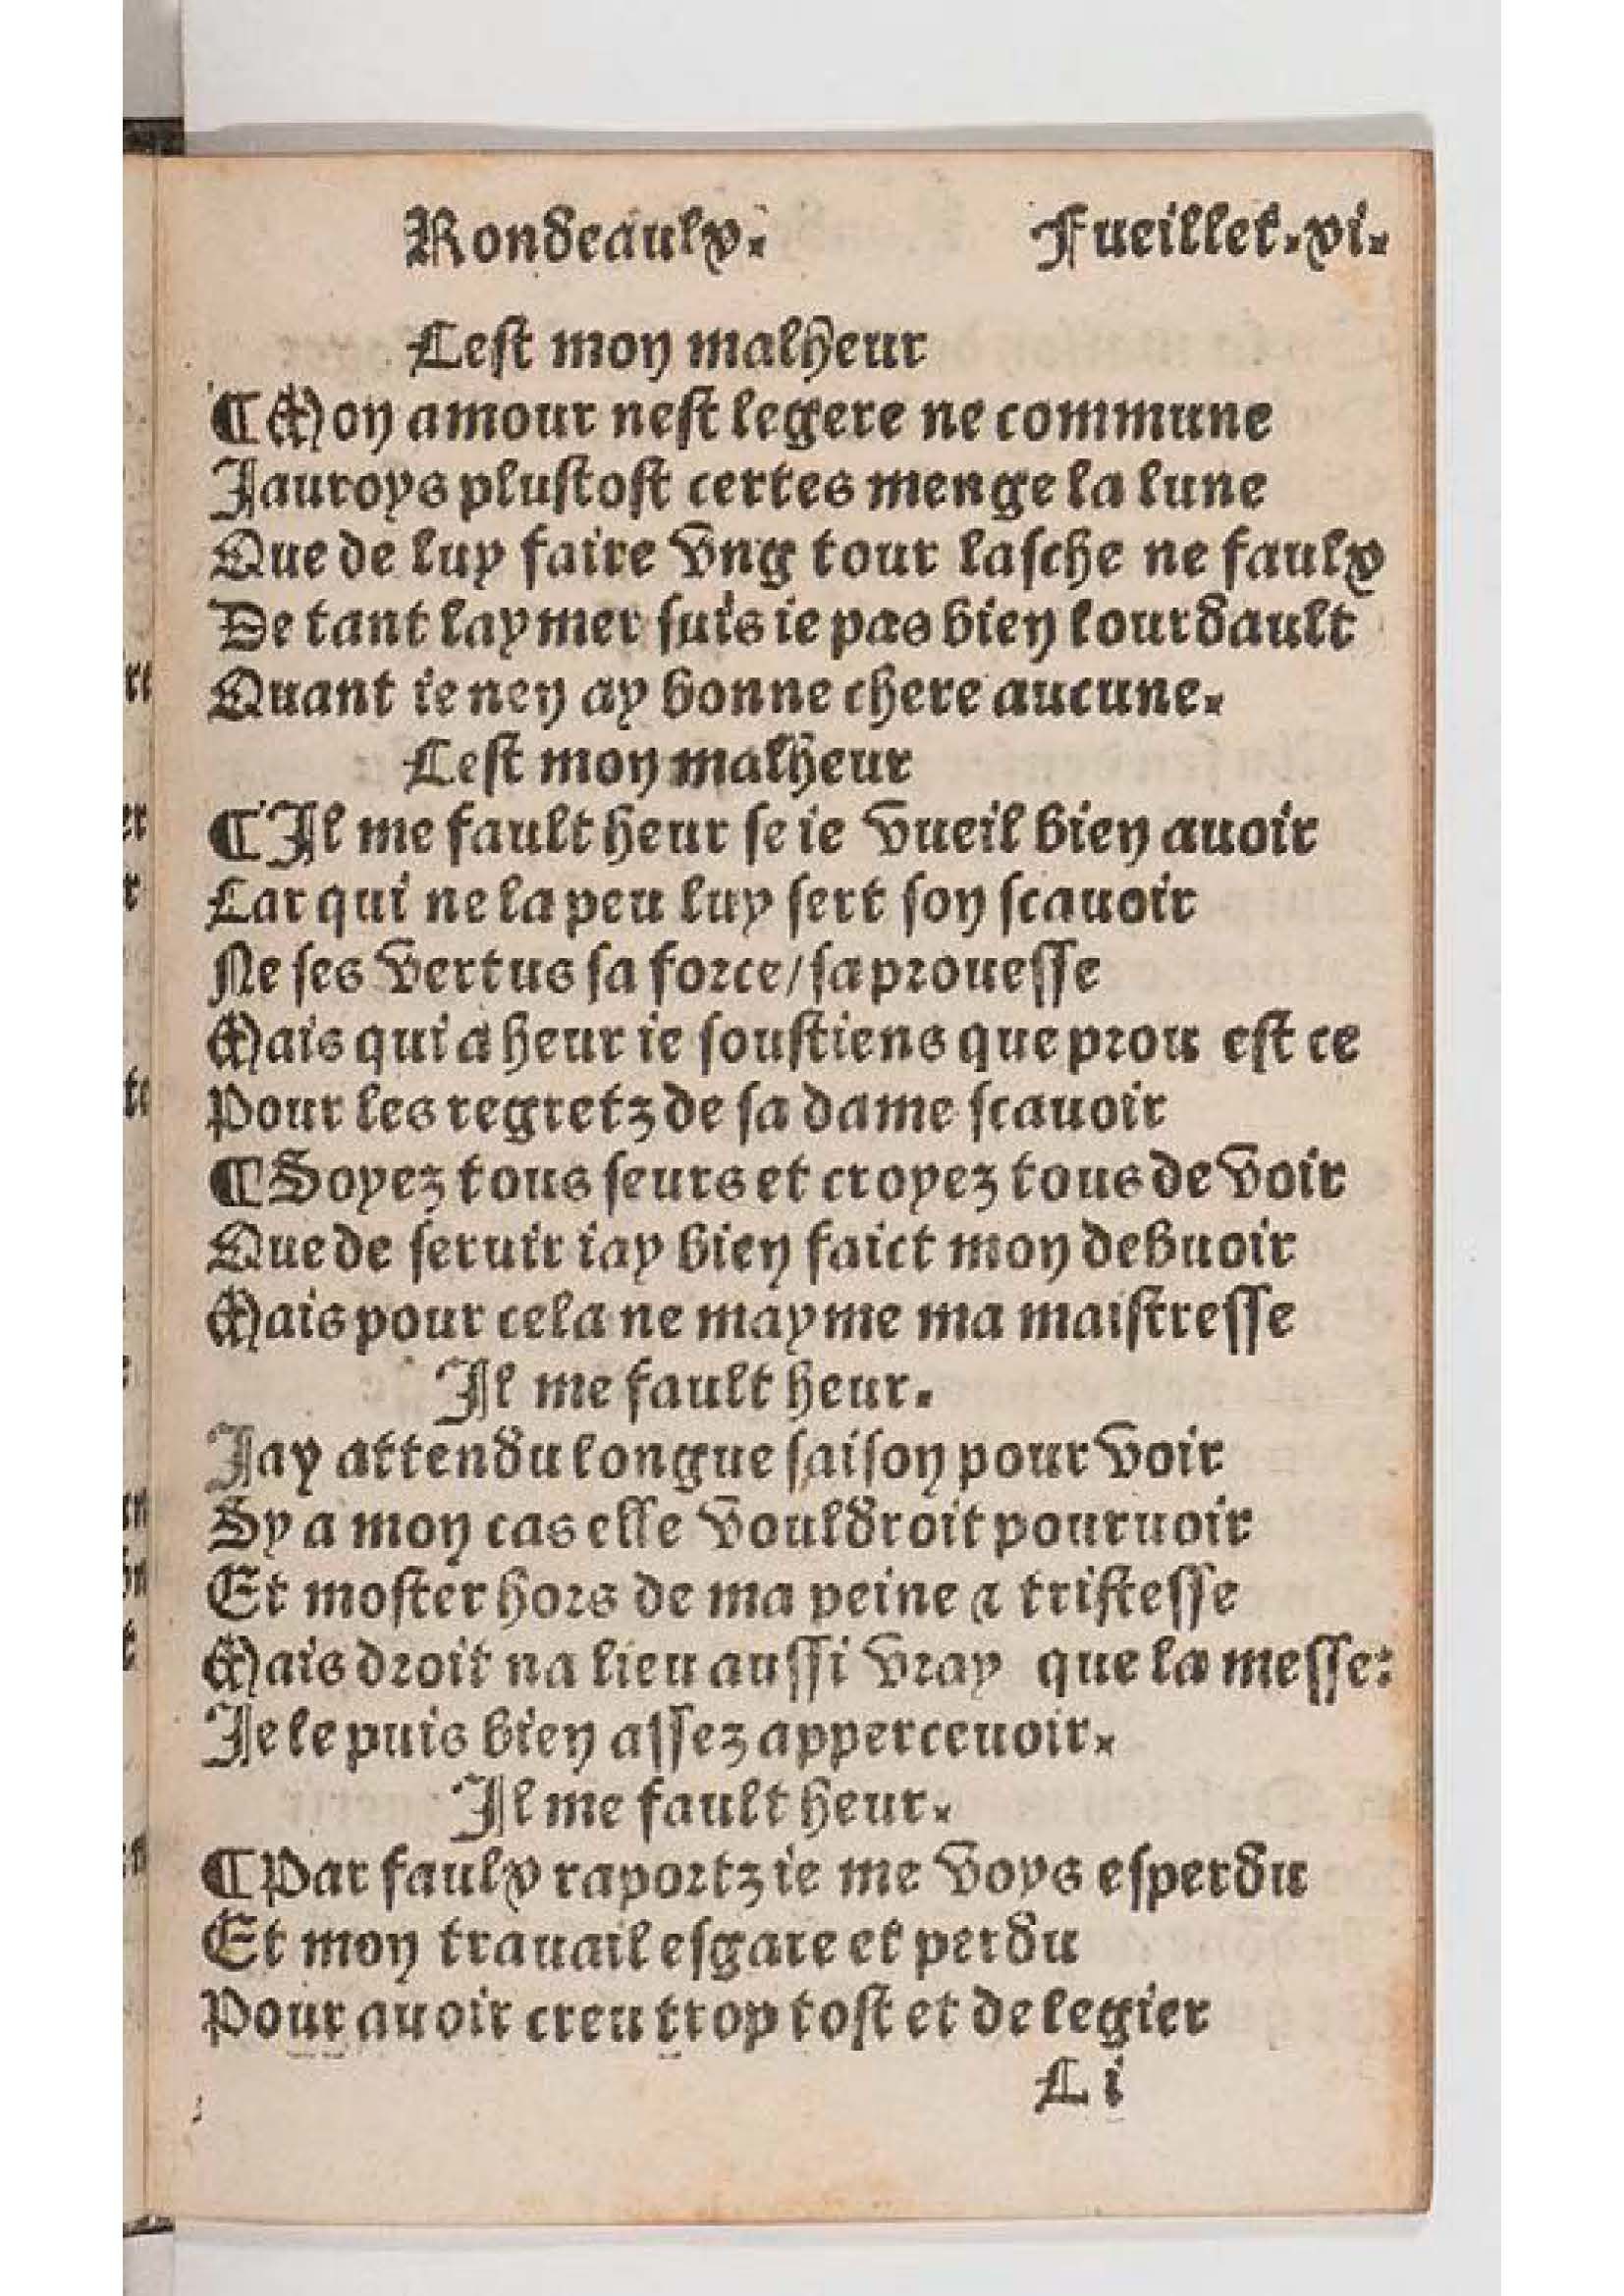 Rondeaulx. Fueillet.vi.
Cest mon malheur
¶ Mon amour nest legere ne commune
Jauroys plustost certes menge la lune
Que de luy faire vng tour lasche ne faulx
De tant laymer suis ie pas bien lourdault
Quant ie nen ay bonne chere aucune.
Cest mon malheur
¶ Il me fault heur se ie vueil bien auoir
Car qui ne la peu luy sert son scauoir
Ne ses vertus sa force/sa prouesse
Mais qui a heur ie soustiens que prou est ce
Pour les regretz de sa dame scauoir
¶ Soyez tous seurs et croyez tous de voir
Que de seruir iay bien faict mon debuoir
Mais pour cela ne mayme ma maistresse
Il me fault heur.
Jay attendu longue saison pour voir
Sy a mon cas elle vouldroit pouruoir
Et moster hors de ma peine & tristesse
Mais droit na lieu aussi vray que la messe:
Je le puis bien assez apperceuoir.
Il me fault heur.
¶ Par faulx raportz ie me voys esperdu
Et mon trauail esgare et perdu
Pour auoir creu trop tost et de legier
C i